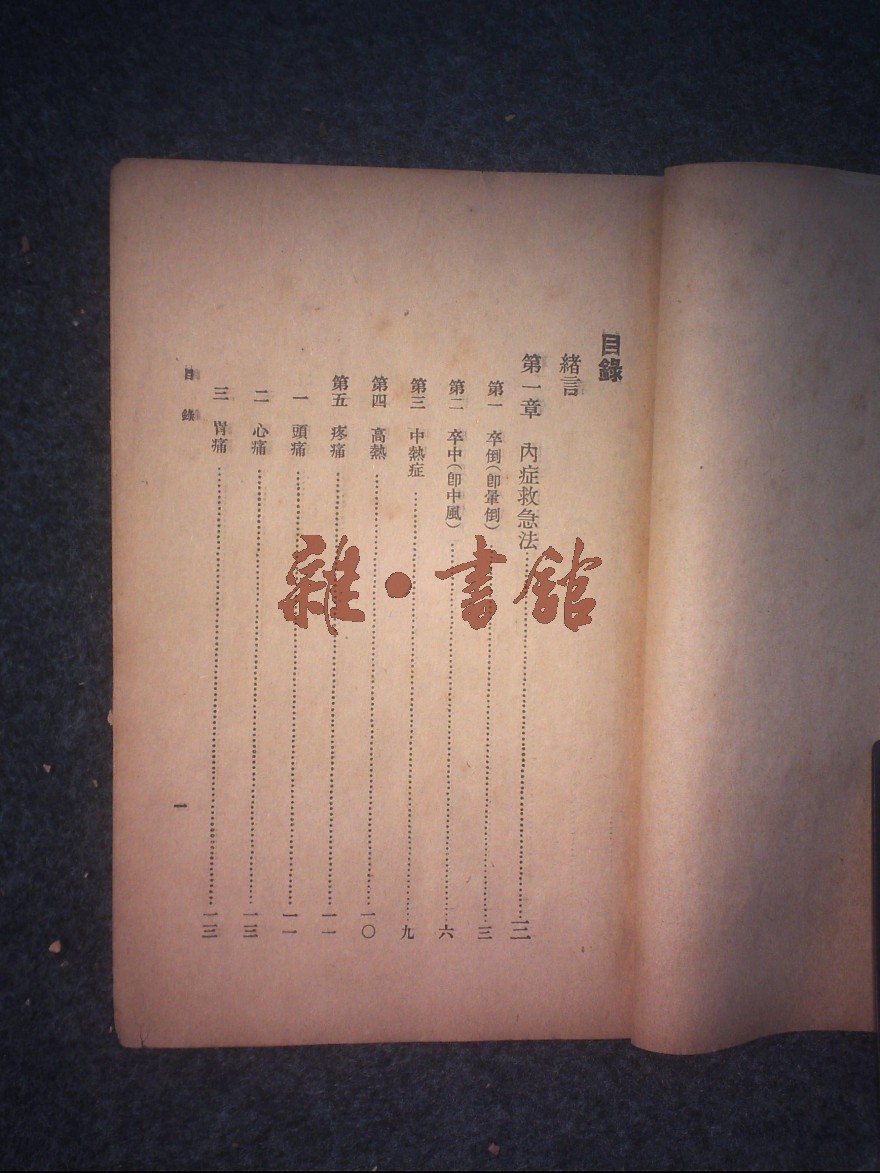 目錄
緒言
第一章 內症救急法……三
第一 卒倒(卽暈倒)……三
第二 卒中(卽中風)……六
第三 中熱症……九
第四 高熱……一〇
第五 疼痛……一一
一 頭痛……一一
二 心痛……一三
三 胃痛……一三
目錄
一
雜·書館